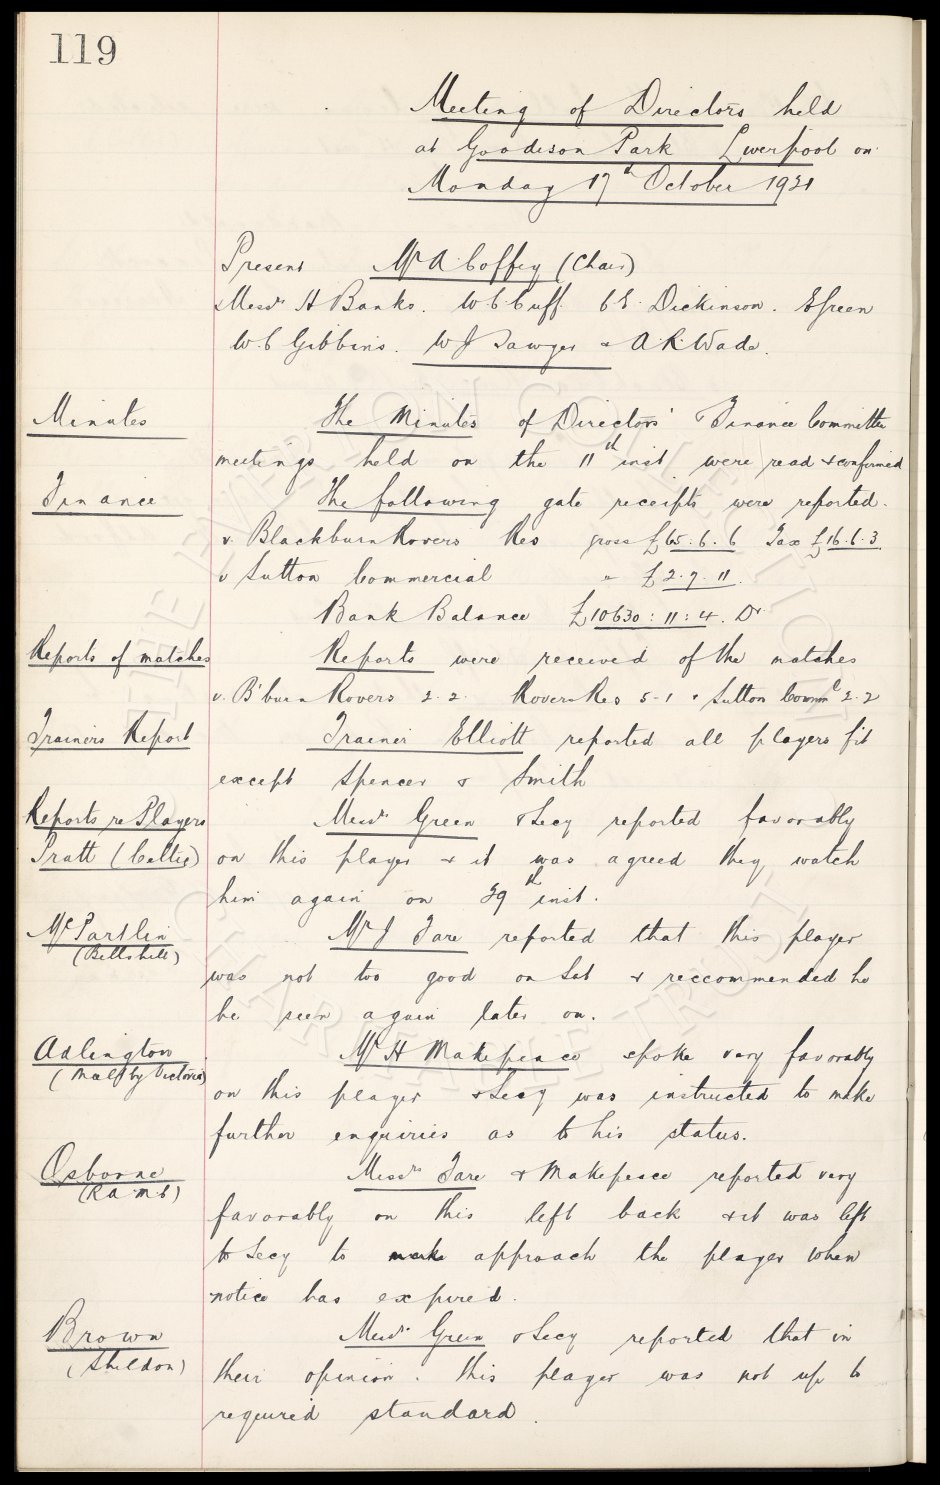 119
Meeting of Directors held
at Goodison Park Liverpool on
Monday 17th October 1921
Present Mr A. Coffey (Chair)
Messrs H Banks. W.C. Cuff. C E. Dickinson. E Green
W.C Gibbins. W J Sawyer & A. R. Wade.
Minutes
The Minutes of Directors' & Finance Committee
meetings held on the 11th inst were read & confirmed
Finance
The following gate receipts were reported.
v. Blackburn Rovers Res gross £65.6.6 Tax £16.6.3
v Sutton Commercial " £2.7.11.
Bank Balance £10630:11:4. Dr
Reports of matches
Reports were received of the matches
v. B'burn Rovers 2.2. Rovers Res 5-1 & Sutton Comml 2.2
Trainers Report
Trainer Elliott reported all players fit
except Spencer & Smith
Reports re Players
Pratt (Celtic)
Messrs Green & Secy reported favorably
on this player & it was agreed they watch
him again on 29th inst.
McPartlin
(Bellshill)
Mr J Fare reported that this player
was not too good on Sat & reccommended he
be seen again later on.
Adlington
(Maltby Victoria)
Mr H Makepeace spoke very favorably
on this player & Secy was instructed to make
further enquiries as to his status.
Osborne
(R.A.M.C)
Messrs Fare & Makepeace reported very
favorably on this left back & it was left
to Secy to make approach the player when
notice has expired.
Brown
(Shildon)
Messrs Green & Secy reported that in
their opinion. this player was not up to
required standard.